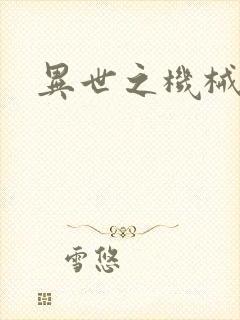 異世之機械
雪悠